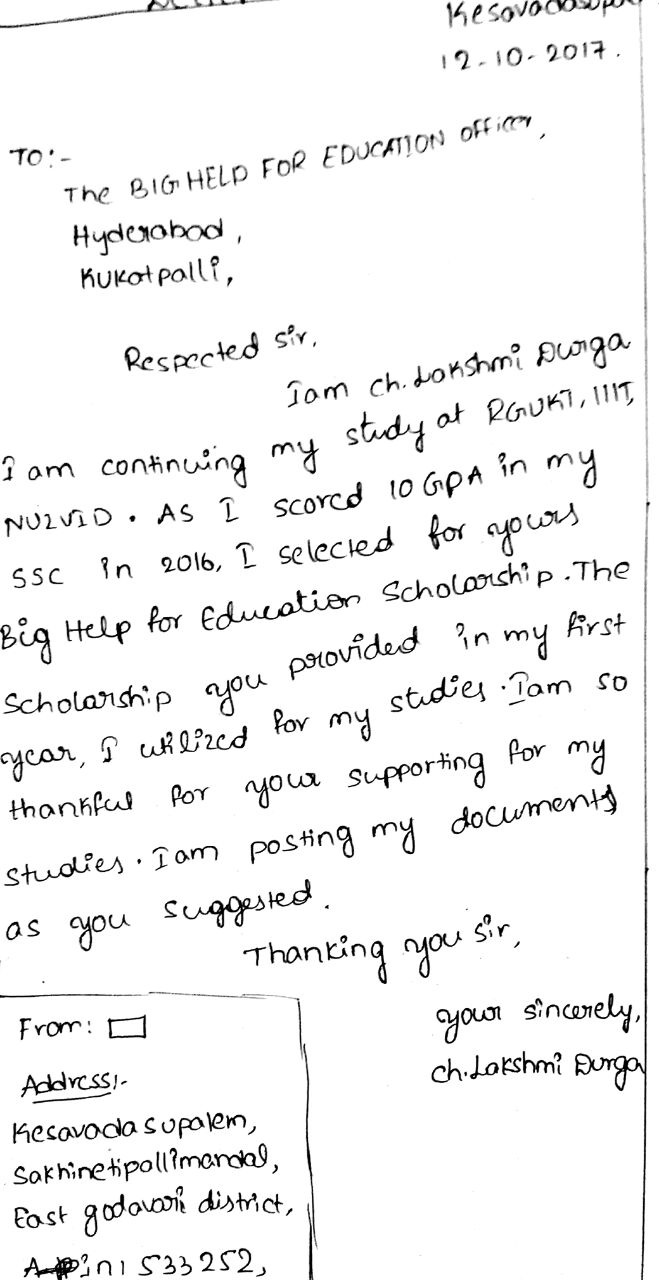 Kesavadasupa
12-10-2017.
TO:-
The BIG HELP FOR EDUCATION officer,
Hyderabad,
Kukatpalli,
Respected Sir,
Iam ch.Lakshmi Durga
I am continuing my study at RGUKT, IIIT,
NUZVID. AS I scored 10 GPA in my
SSC in 2016, I selected for yours
Big Help for Education Scholarship. The
Scholarship you provided in my first
year, I utilized for my studies. Iam so
thankful for your supporting for my
studies. Iam posting my documents
as you suggested.
Thanking you sir,
your sincerely,
ch.Lakshmi Durga
From:
Address:-
Kesavadasupalem,
Sakhinetipallimandal,
East godavari district,
533252,